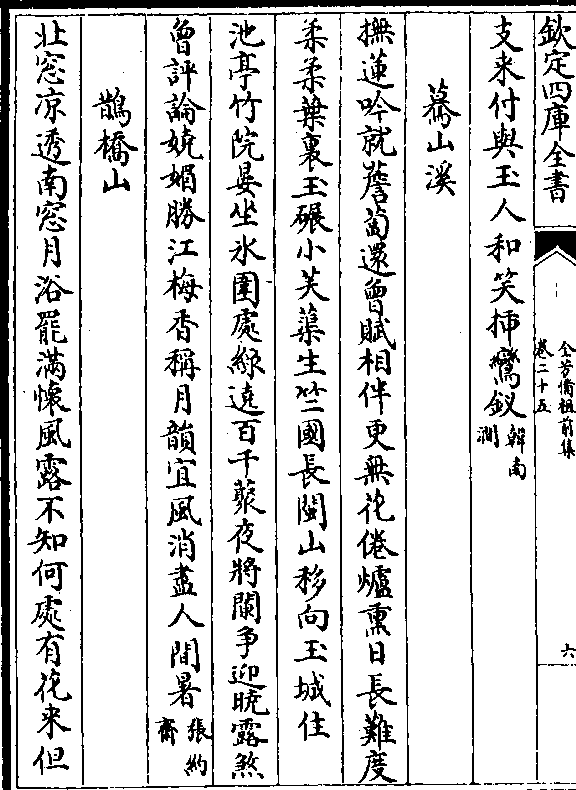 欽定四庫全書
全芳備祖前集
卷二十五
六
支来付與玉人和笑揷鸞釵韓南澗
驀山溪
撫蓮吟就薝蔔還曾賦相伴更無花倦爐熏日長難度
柔柔葉裏玉碾小芙蕖生竺國長閩山移向玉城住
池亭竹院晏坐氷圍處綠遶百千藂夜將闌爭迎曉露煞
曾評論嬈娟勝江梅香稱月韻宜風消盡人間暑張約齋
鵲橋山
北窓凉透南窓月浴罷滿懷風露不知何處有花来但